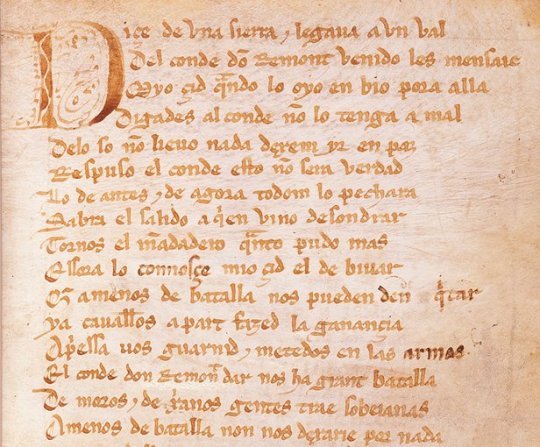 Diçe de vna sierra ⁊ legaua a vn val
Del conde dõ Remont venido les mensaie
Myo çid q̃ndo lo oyo en bio pora alla
Digades al conde nõ lo tenga a mal
Delo so nõ lieuo nada dexem yr en paz
Respuso el conde esto nõ sera verdad
Lo de antes ⁊ de agora todom lo pechara
Sabra el salido a q̃en vino desondrar
Tornos el mãdadero q̃nto pudo mas
Essora lo connosçe mio çid el de biuar
Q̃ a menos de batalla nos pueden den q̃tar
ya cauall̃os a part fazed la ganançia
Ap̃essa uos guarnid ⁊ metedos en las armas
El conde don Remon̄ dar nos ha grant batalla
De moros ⁊ de xp̃anos gentes trae sobeianas
Amenos de batalla non nos dexarie por nada